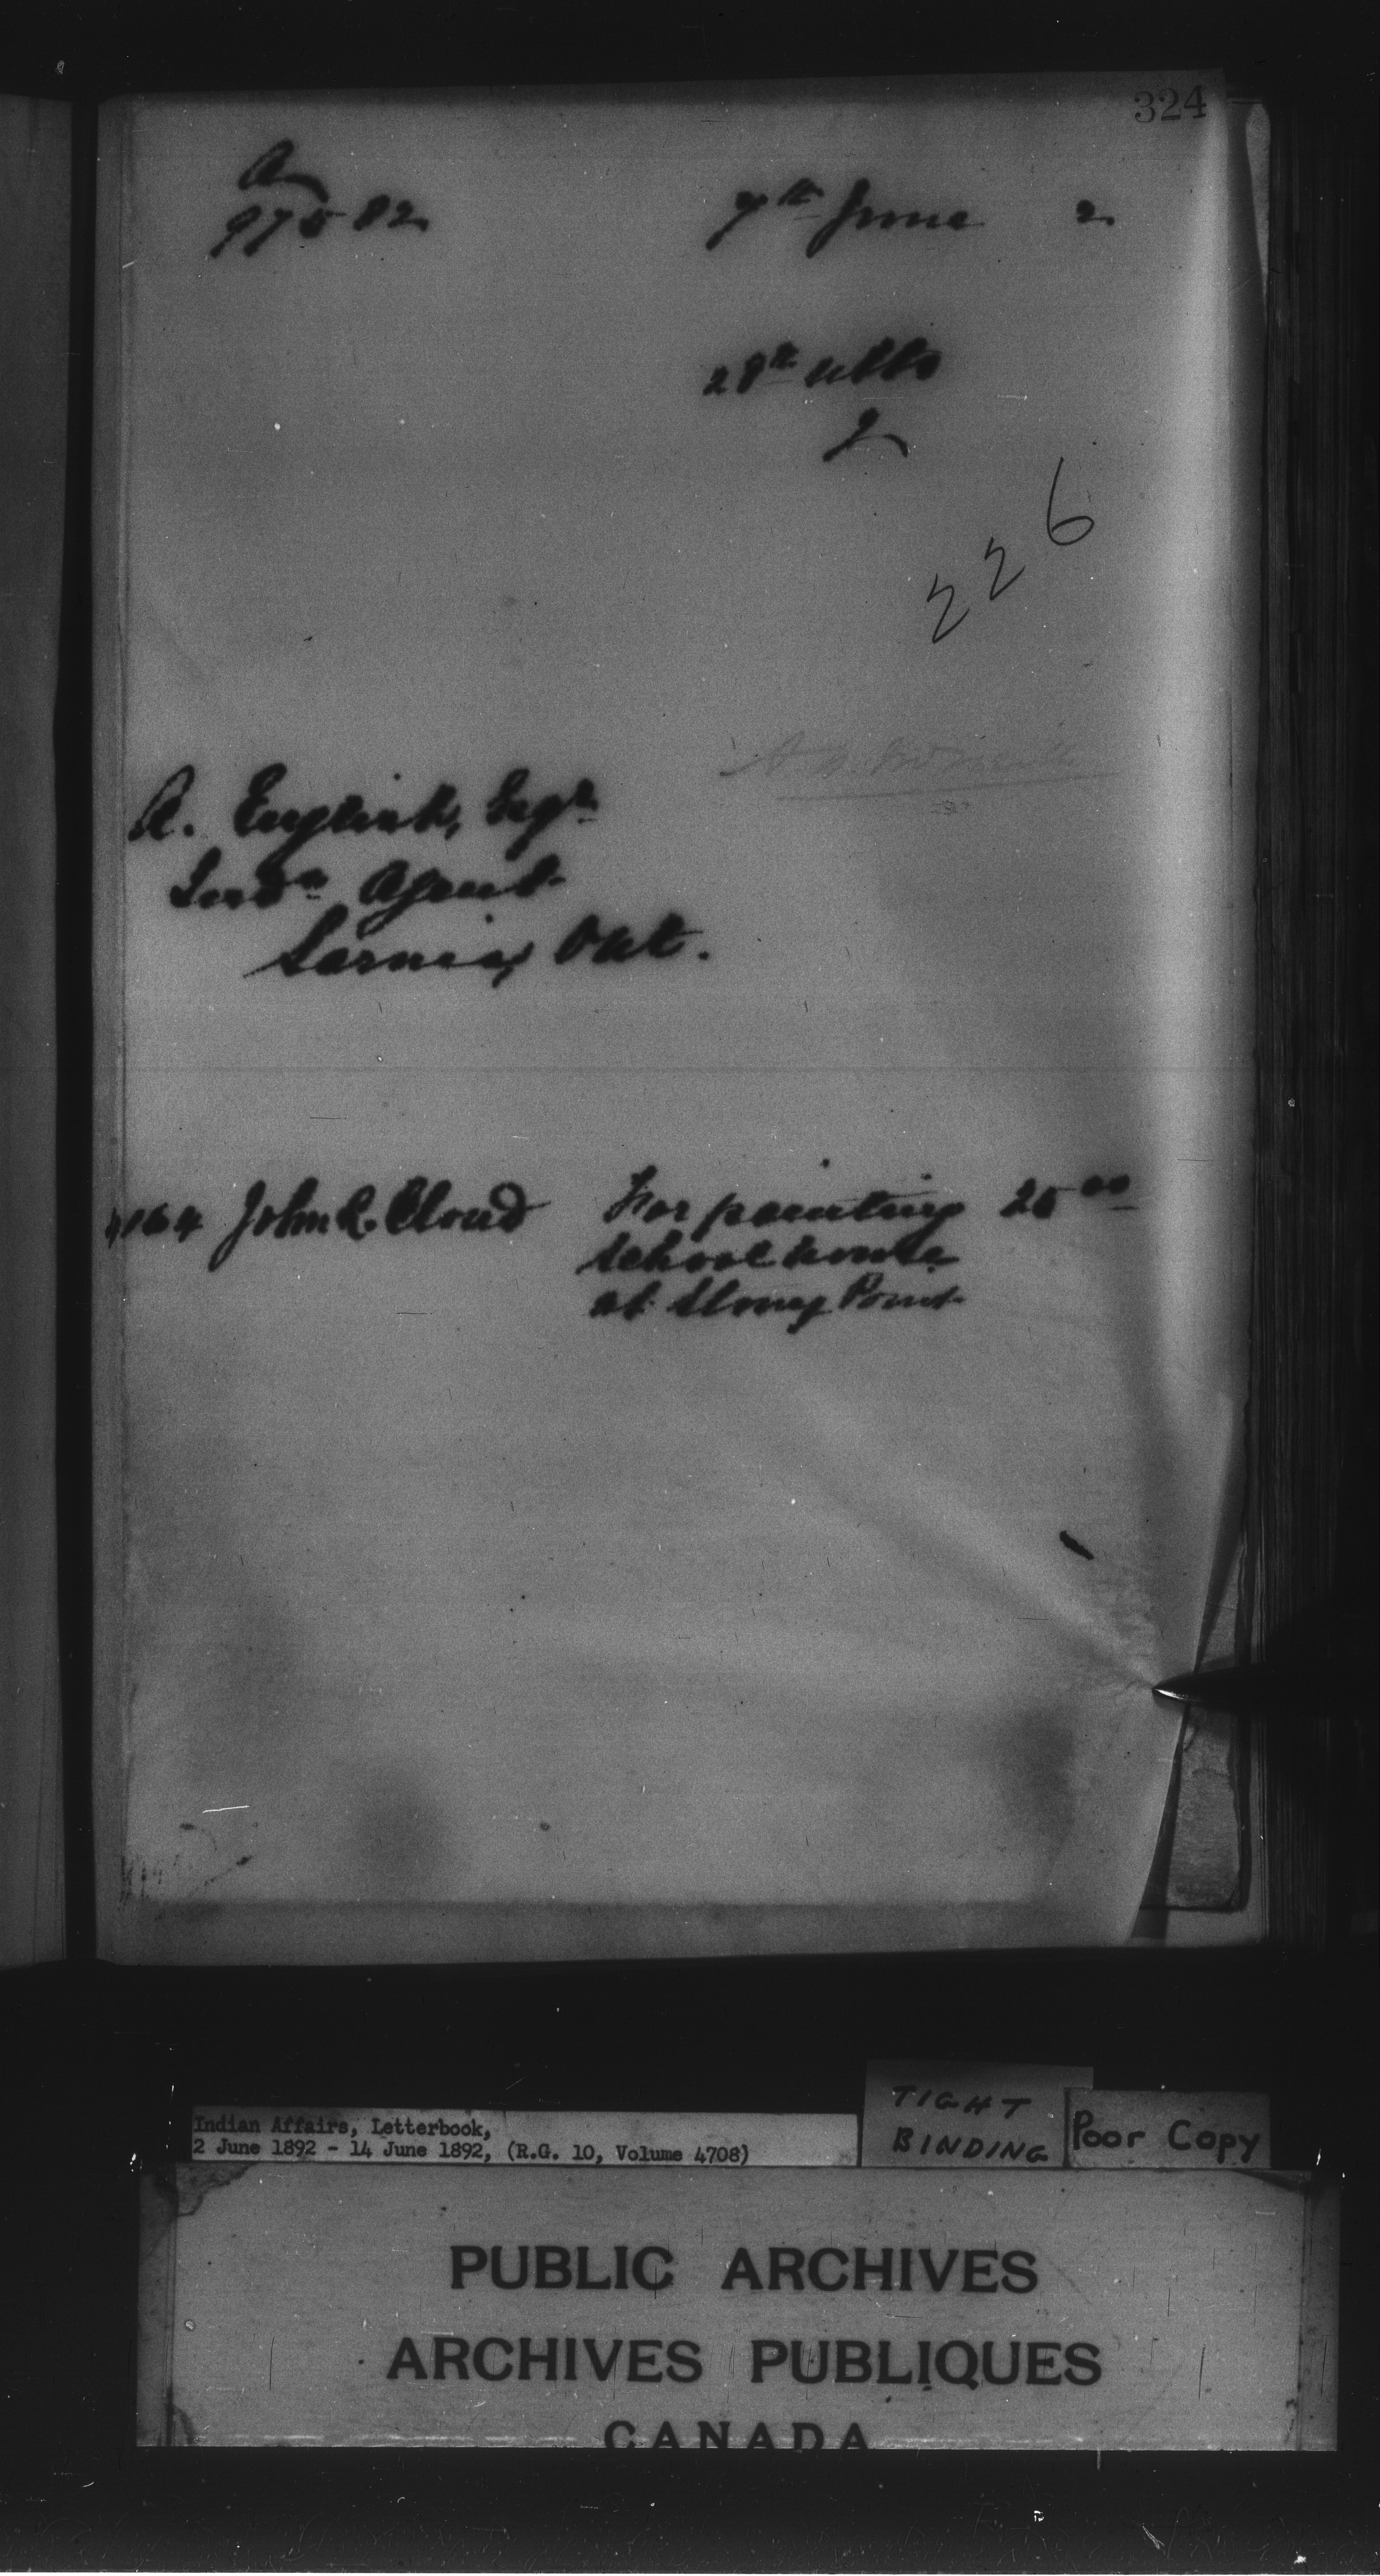 324
A
97582
7th June 2
28th ulto
226
A. English, Esqr
Indn Agent
Sarnia, Ont.
4164 John R. Cloud For painting 25 00
school house
at Stony Point
Indian Affairs, Letterbook,
2 June 1892 - 14 June 1892, (R.G. 10, Volume 4708)
TIGHT
BINDING
Poor Copy
PUBLIC ARCHIVES
ARCHIVES PUBLIQUES
CANADA